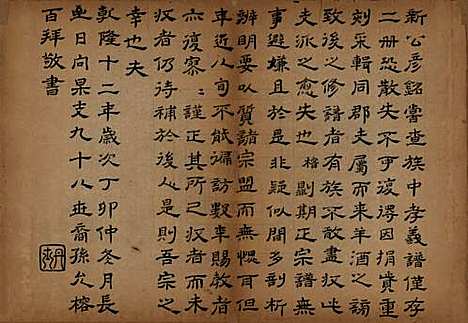 新公彦銘嘗查族中孝義譜僅存
二冊恐散失不可復得因捐貲重
刻采輯同郡夫屬而來羊酒之謗
致後之修譜者有族不敢收世
夫派之愈失也榕勖期正宗譜無
事避嫌且於是非疑似間多剖析
辨明要以質諸宗盟而無愧耳但
年近八旬不能徧訪數年賜教者
六復寥寥謹正其所已收者而未
收者仍待補於後人是則吾宗之
幸也夫
乾隆十二年歲次丁卯仲冬月長
至日向杲支九十八世裔孫允榕
百拜敬書